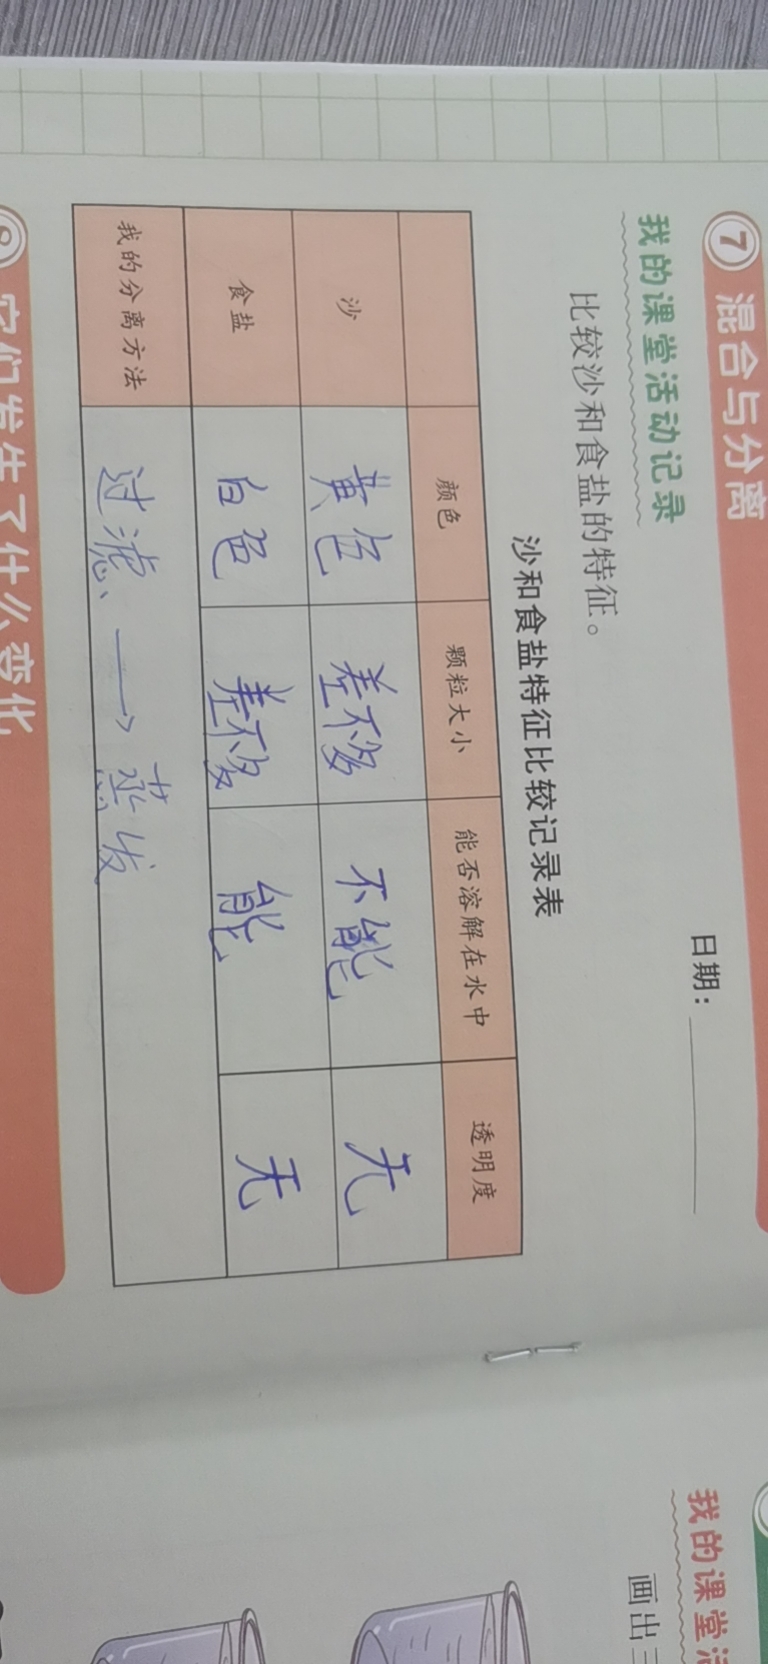 7 混合与分离
我的课堂活动记录
日期：
比较沙和食盐的特征。
沙和食盐特征比较记录表
颜色 颗粒大小 能否溶解在水中 透明度
沙 黄色 差不多 不能 无
食盐 白色 差不多 能 无
我的分离方法 过滤、→蒸发
它们发生了什么变化
我的课堂活
画出三